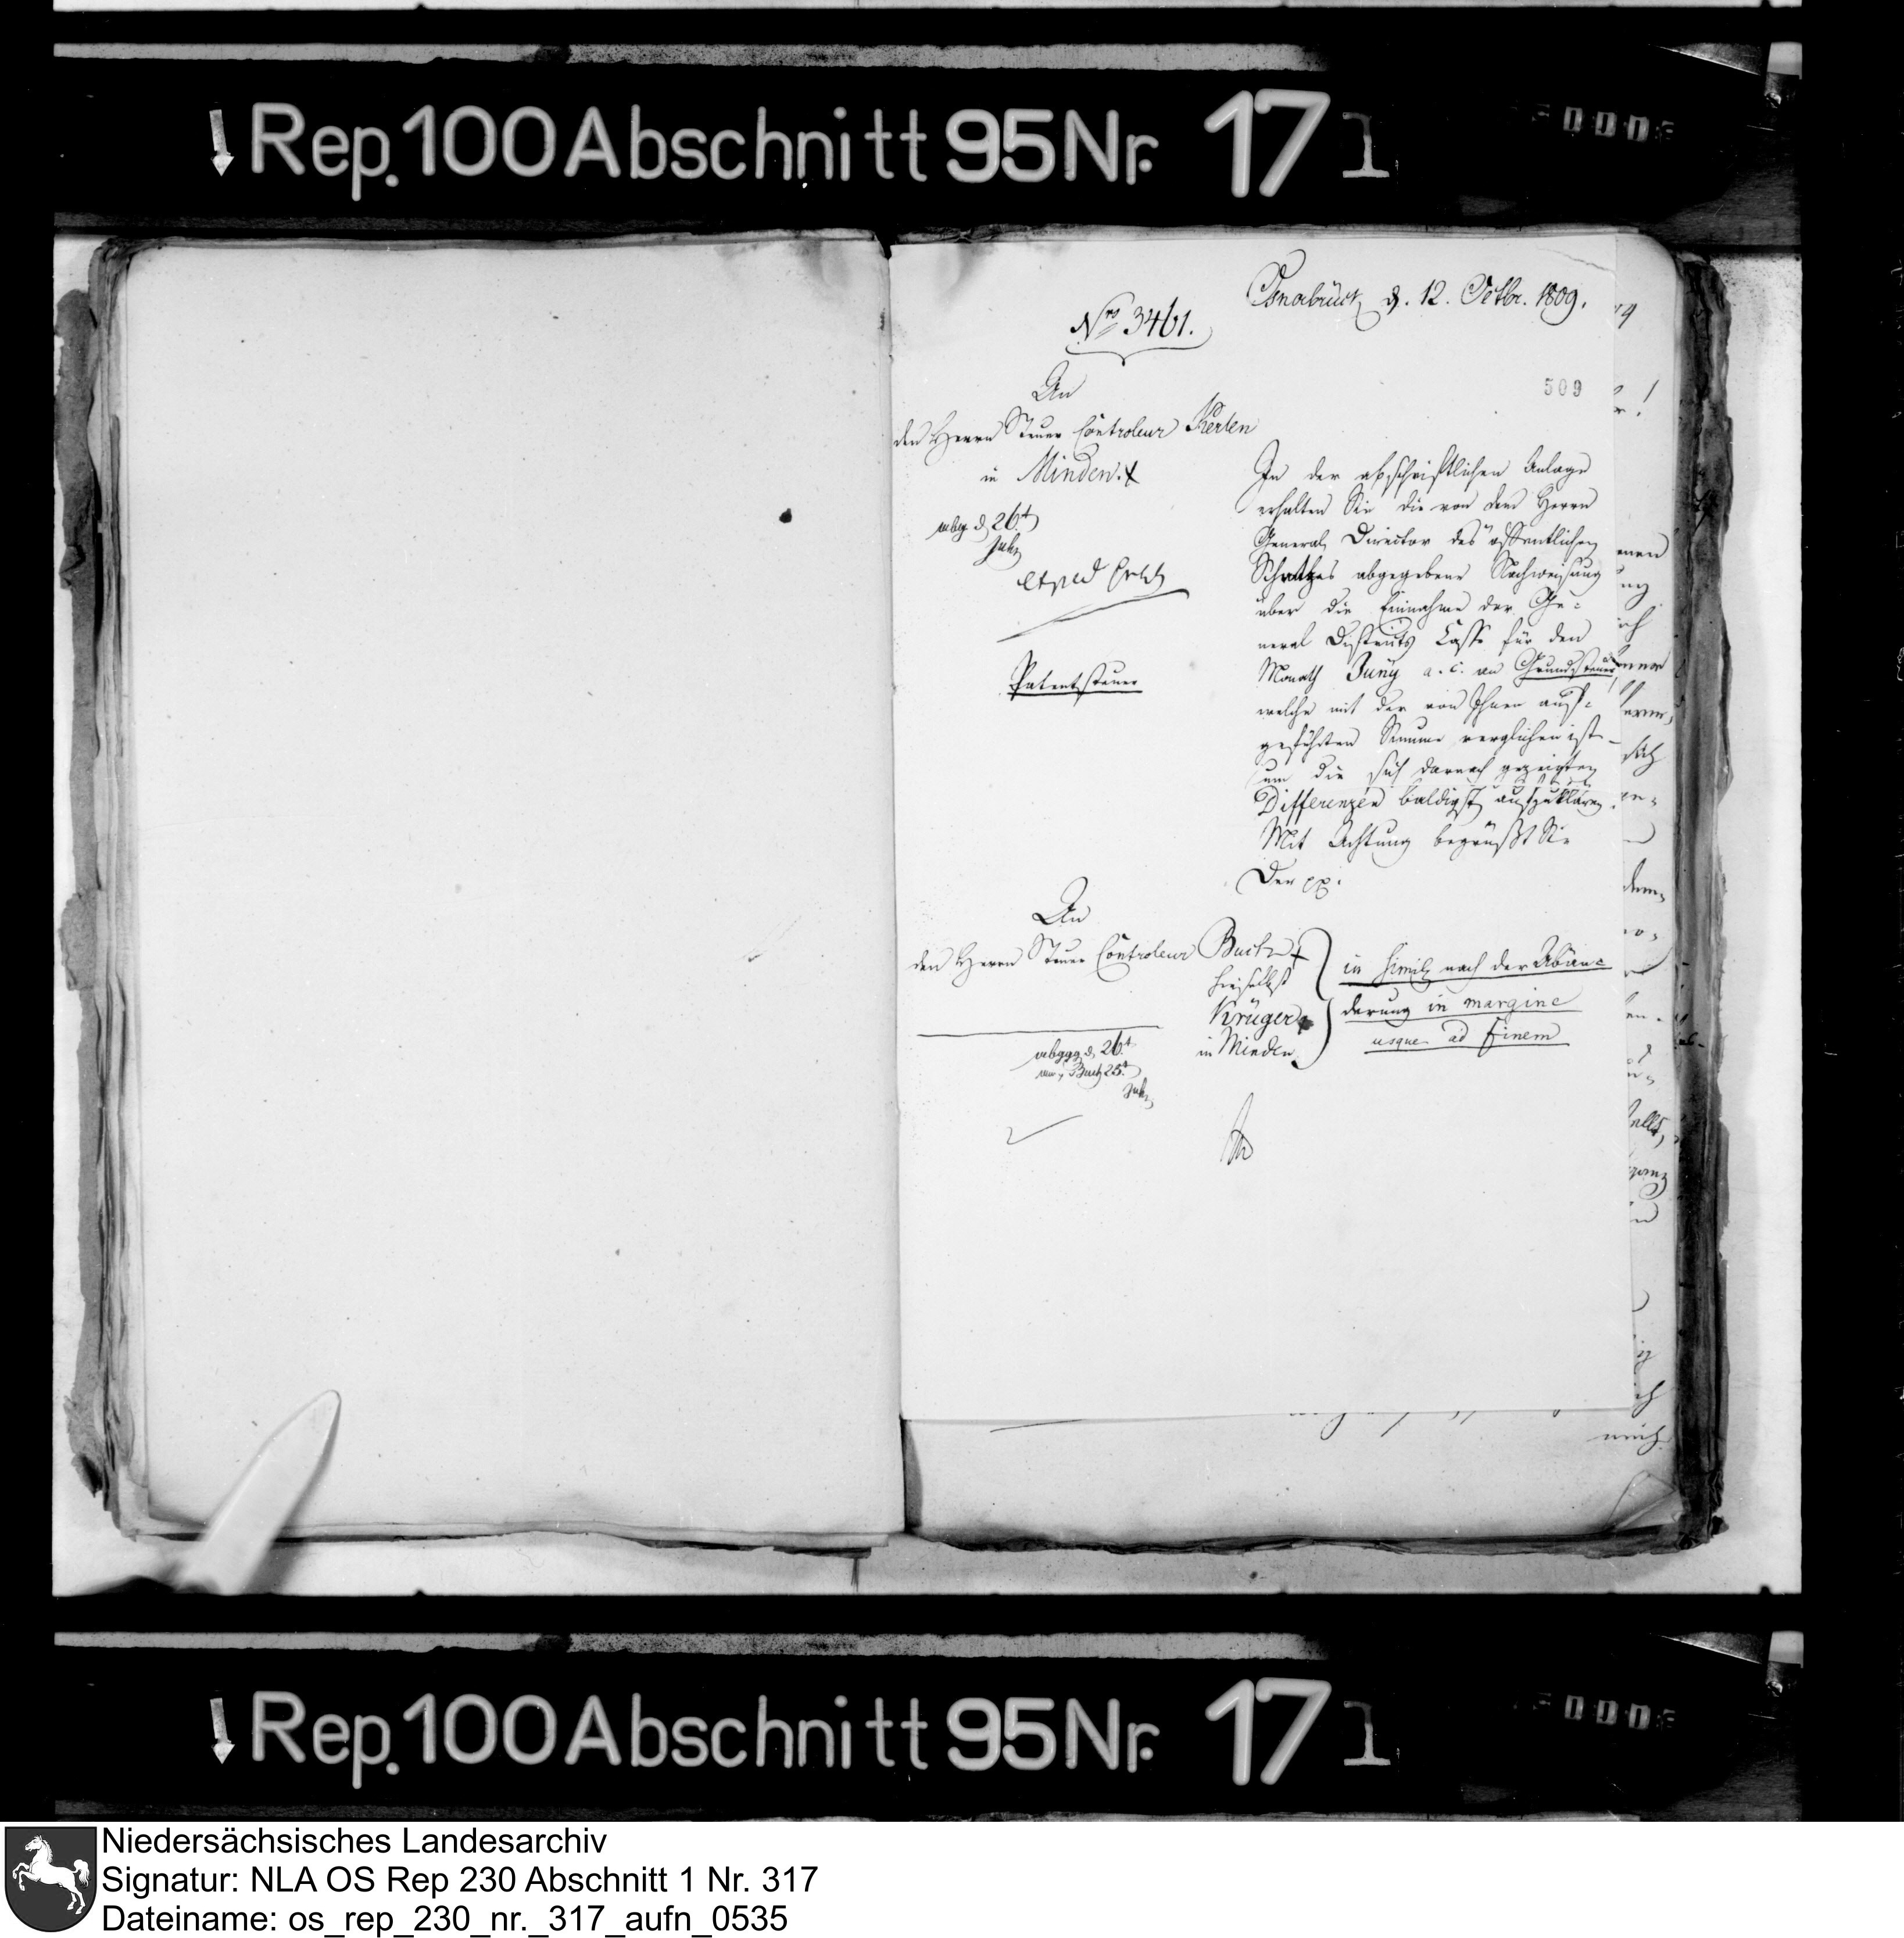 Rep. 100 Abschnitt 95 Nr. 171
Osnabrück d. 12. Octbr. 1809.
Nro 3461.
509
An
den Herrn Steuer Controleur Kerlen
in Minden.
d 26t
Patentsteuer
In der abschriftlichen Anlage
erhalten Sie die von dem Herrn
General Director des öffentlichen
Schatzes abgegebene Nachweisung
über die Einnahme der Ge=
neral Districts Casse für den
Monath Juny a. c. an Grundsteuer,
welche mit der von Ihnen auf=
geführten Summe verglichen ist
um die sich darnach gezeigten
Differenzen baldigst aufzuklären.
Mit Achtung begrüßt Sie
Der pp.
An
den Herrn Steuer Controleur Buch
hieselbst
Krüger
in Minden
in simili nach der Abän=
derung in margine
usque ad finem
d. 26t
Buch 25t
Rep. 100 Abschnitt 95 Nr. 171
Niedersächsisches Landesarchiv
Signatur: NLA OS Rep 230 Abschnitt 1 Nr. 317
Dateiname: os_rep_230_nr._317_aufn_0535